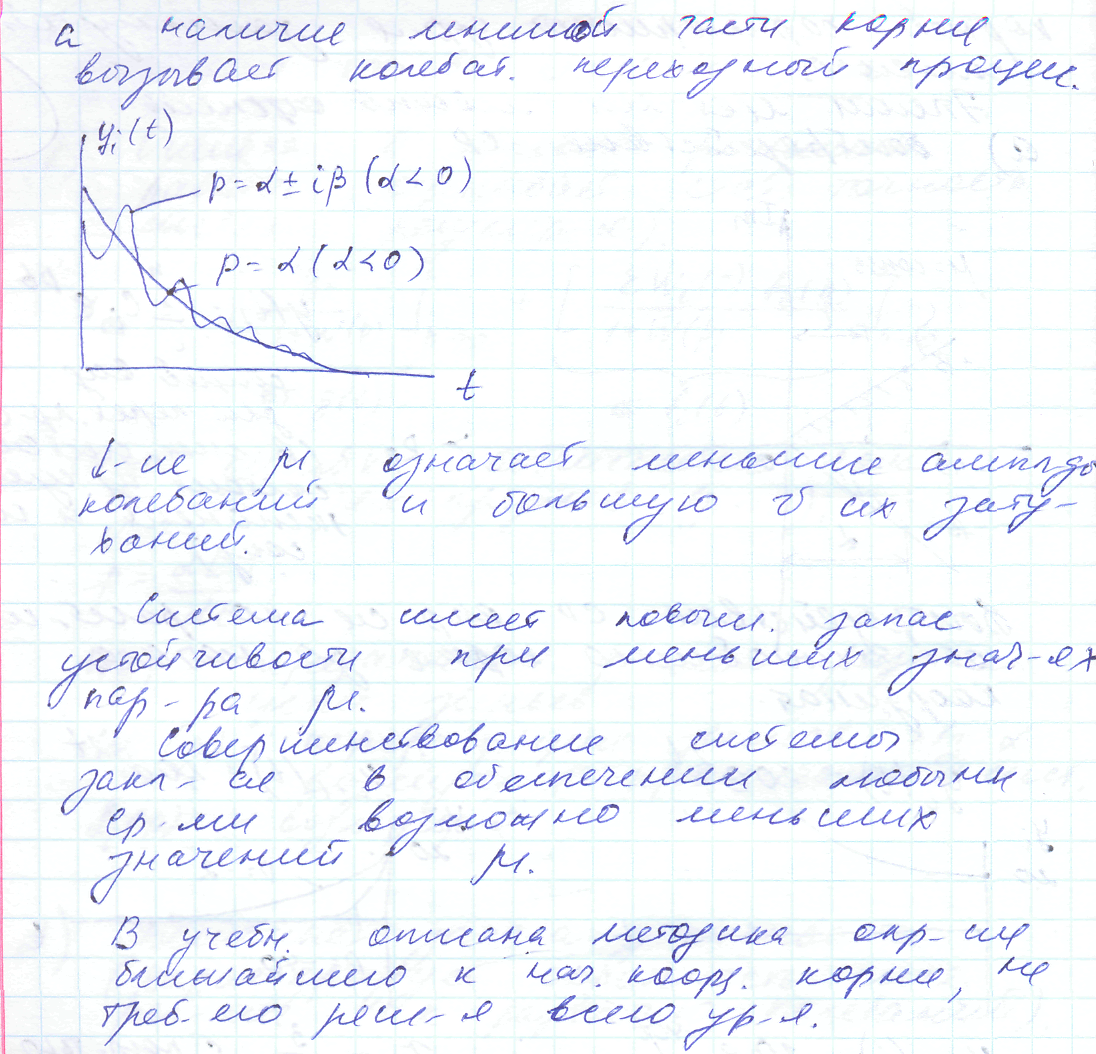 а наличие мнимой части корня
вызывает колебат. переходный процесс.
yᵢ(t)
p = α ± iβ (α < 0)
p = α (α < 0)
t
↓-ие μ означает меньшие ампл-ды
колебаний и большую τ их зату-
ханий.
Система имеет повыш. запас
устойчивости при меньших знач-ях
пар-ра μ.
Совершенствование системы
закл-ся в обеспечении любыми
ср-ми возможно меньших
значений μ.
В учебн. описана методика опр-ия
ближайшего к нач. коорд. корня, не
треб-его реш-я всего ур-я.